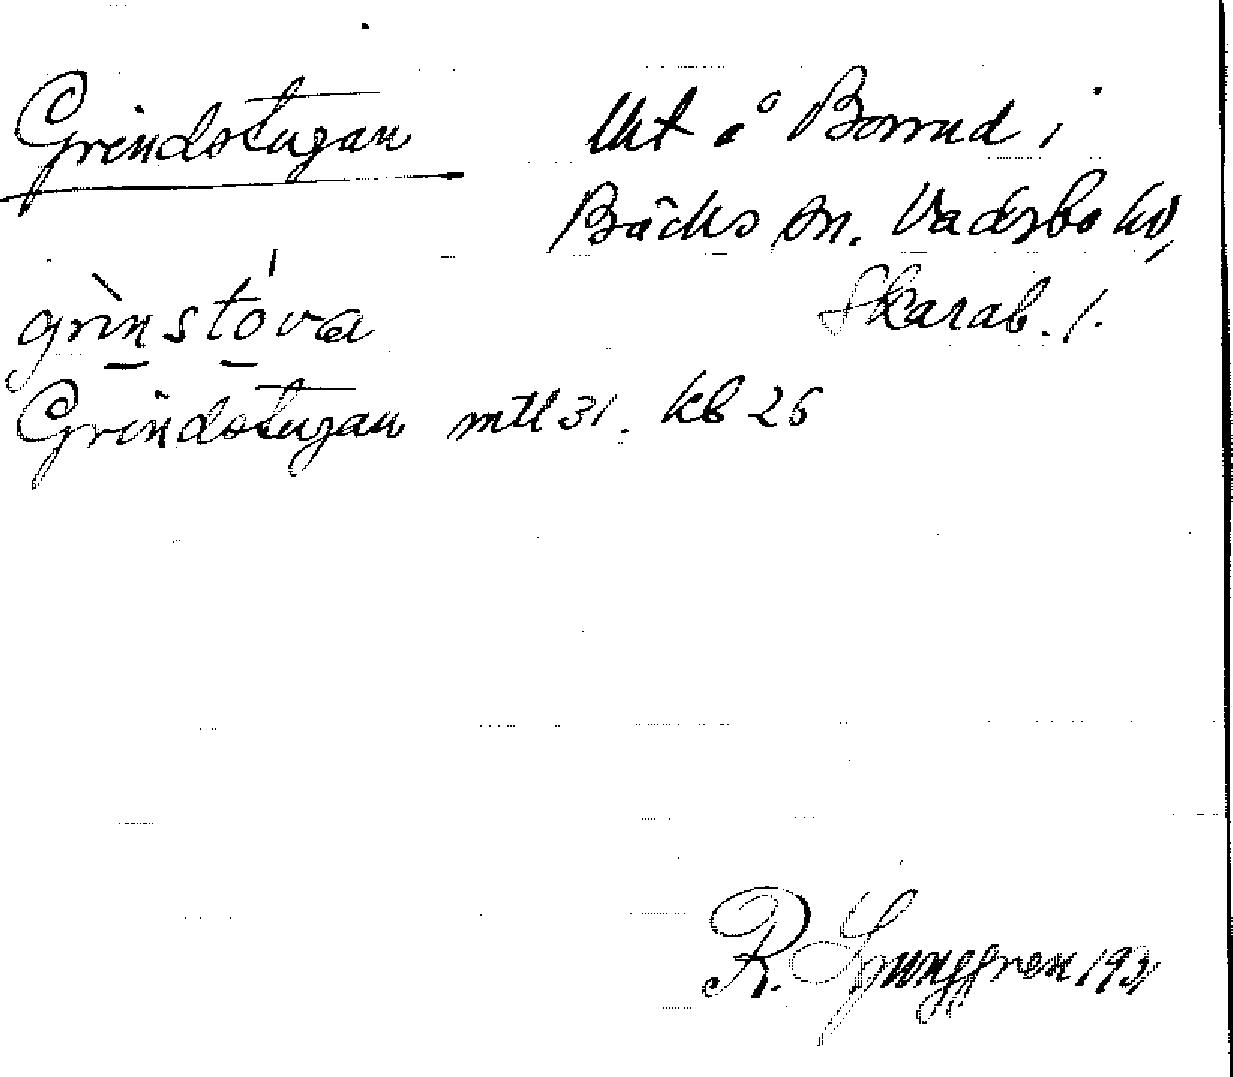 Grindstugan
Ukt å Borrud i
Bäcks sn. Vadsbo hd,
Skarab. l.
grìnstóva
Grindstugan mtl 31. kb 26
R. Ljunggren 192